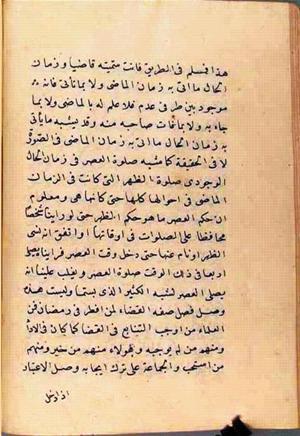 هذا فسلم فى الطريق فانت متيته قاضيا وزمان
الحال ما اتى به زمان الماضى ولا بما تأتى فانه
موجود بين طرفى عدم فلا علم له بالماضى ولا بما
جاء به ولا بما فات صاحبه منه وقد يشبه ما يأتى
به زمان الحال ما اتى به زمان الماضى فى الصورة
لا فى الحقيقة كما تشبه صلوة العصر فى زمان الحال
الوجودى صلوة الظهر التى كانت فى الزمان
الماضى فى احوالها كلها حتى كانها هى ومعلوم
ان حكم العصر ما هو حكم الظهر حتى لو رأينا شخصا
محافظا على الصلوات فى اوقاتها واتفق انه نسى
الظهر او نام عنها حتى دخل وقت العصر فراينا يصلى
اربعا فى ذلك الوقت صلوة العصر ويغلب علينا انه
يصلى العصر لشبه الكثير الذى بينهما وليست هذه
وصل فصل صفة القضاء لمن افطر فى رمضان فمن
العلماء من اوجب التتابع فى القضا كما كان فى الاداء
ومنهم من لم يوجبه وهؤلاء منهم من خير ومنهم
من استحب والجماعة على ترك ايجابه وصل الاعتبار
اذا دخل